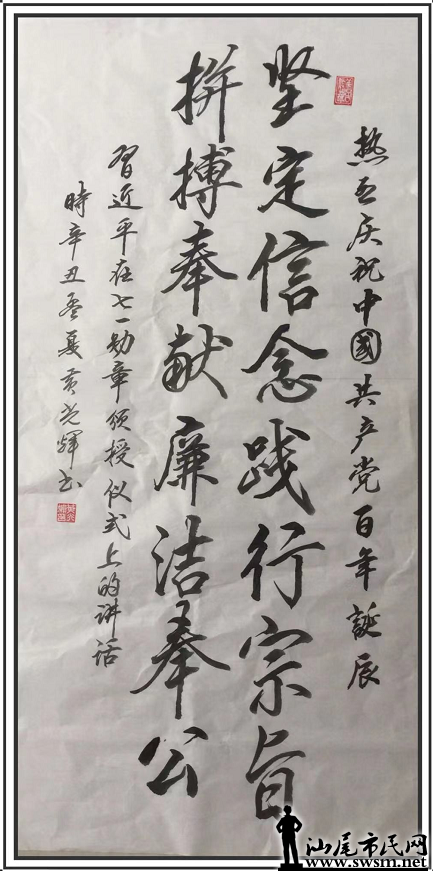 热烈庆祝中國共产党百年誕辰
坚定信念践行宗旨
拚搏奉献廉洁奉公
习近平在七一勋章颁授仪式上的讲话
時辛丑孟夏黄光輝书
汕尾市民网
www.swsm.net